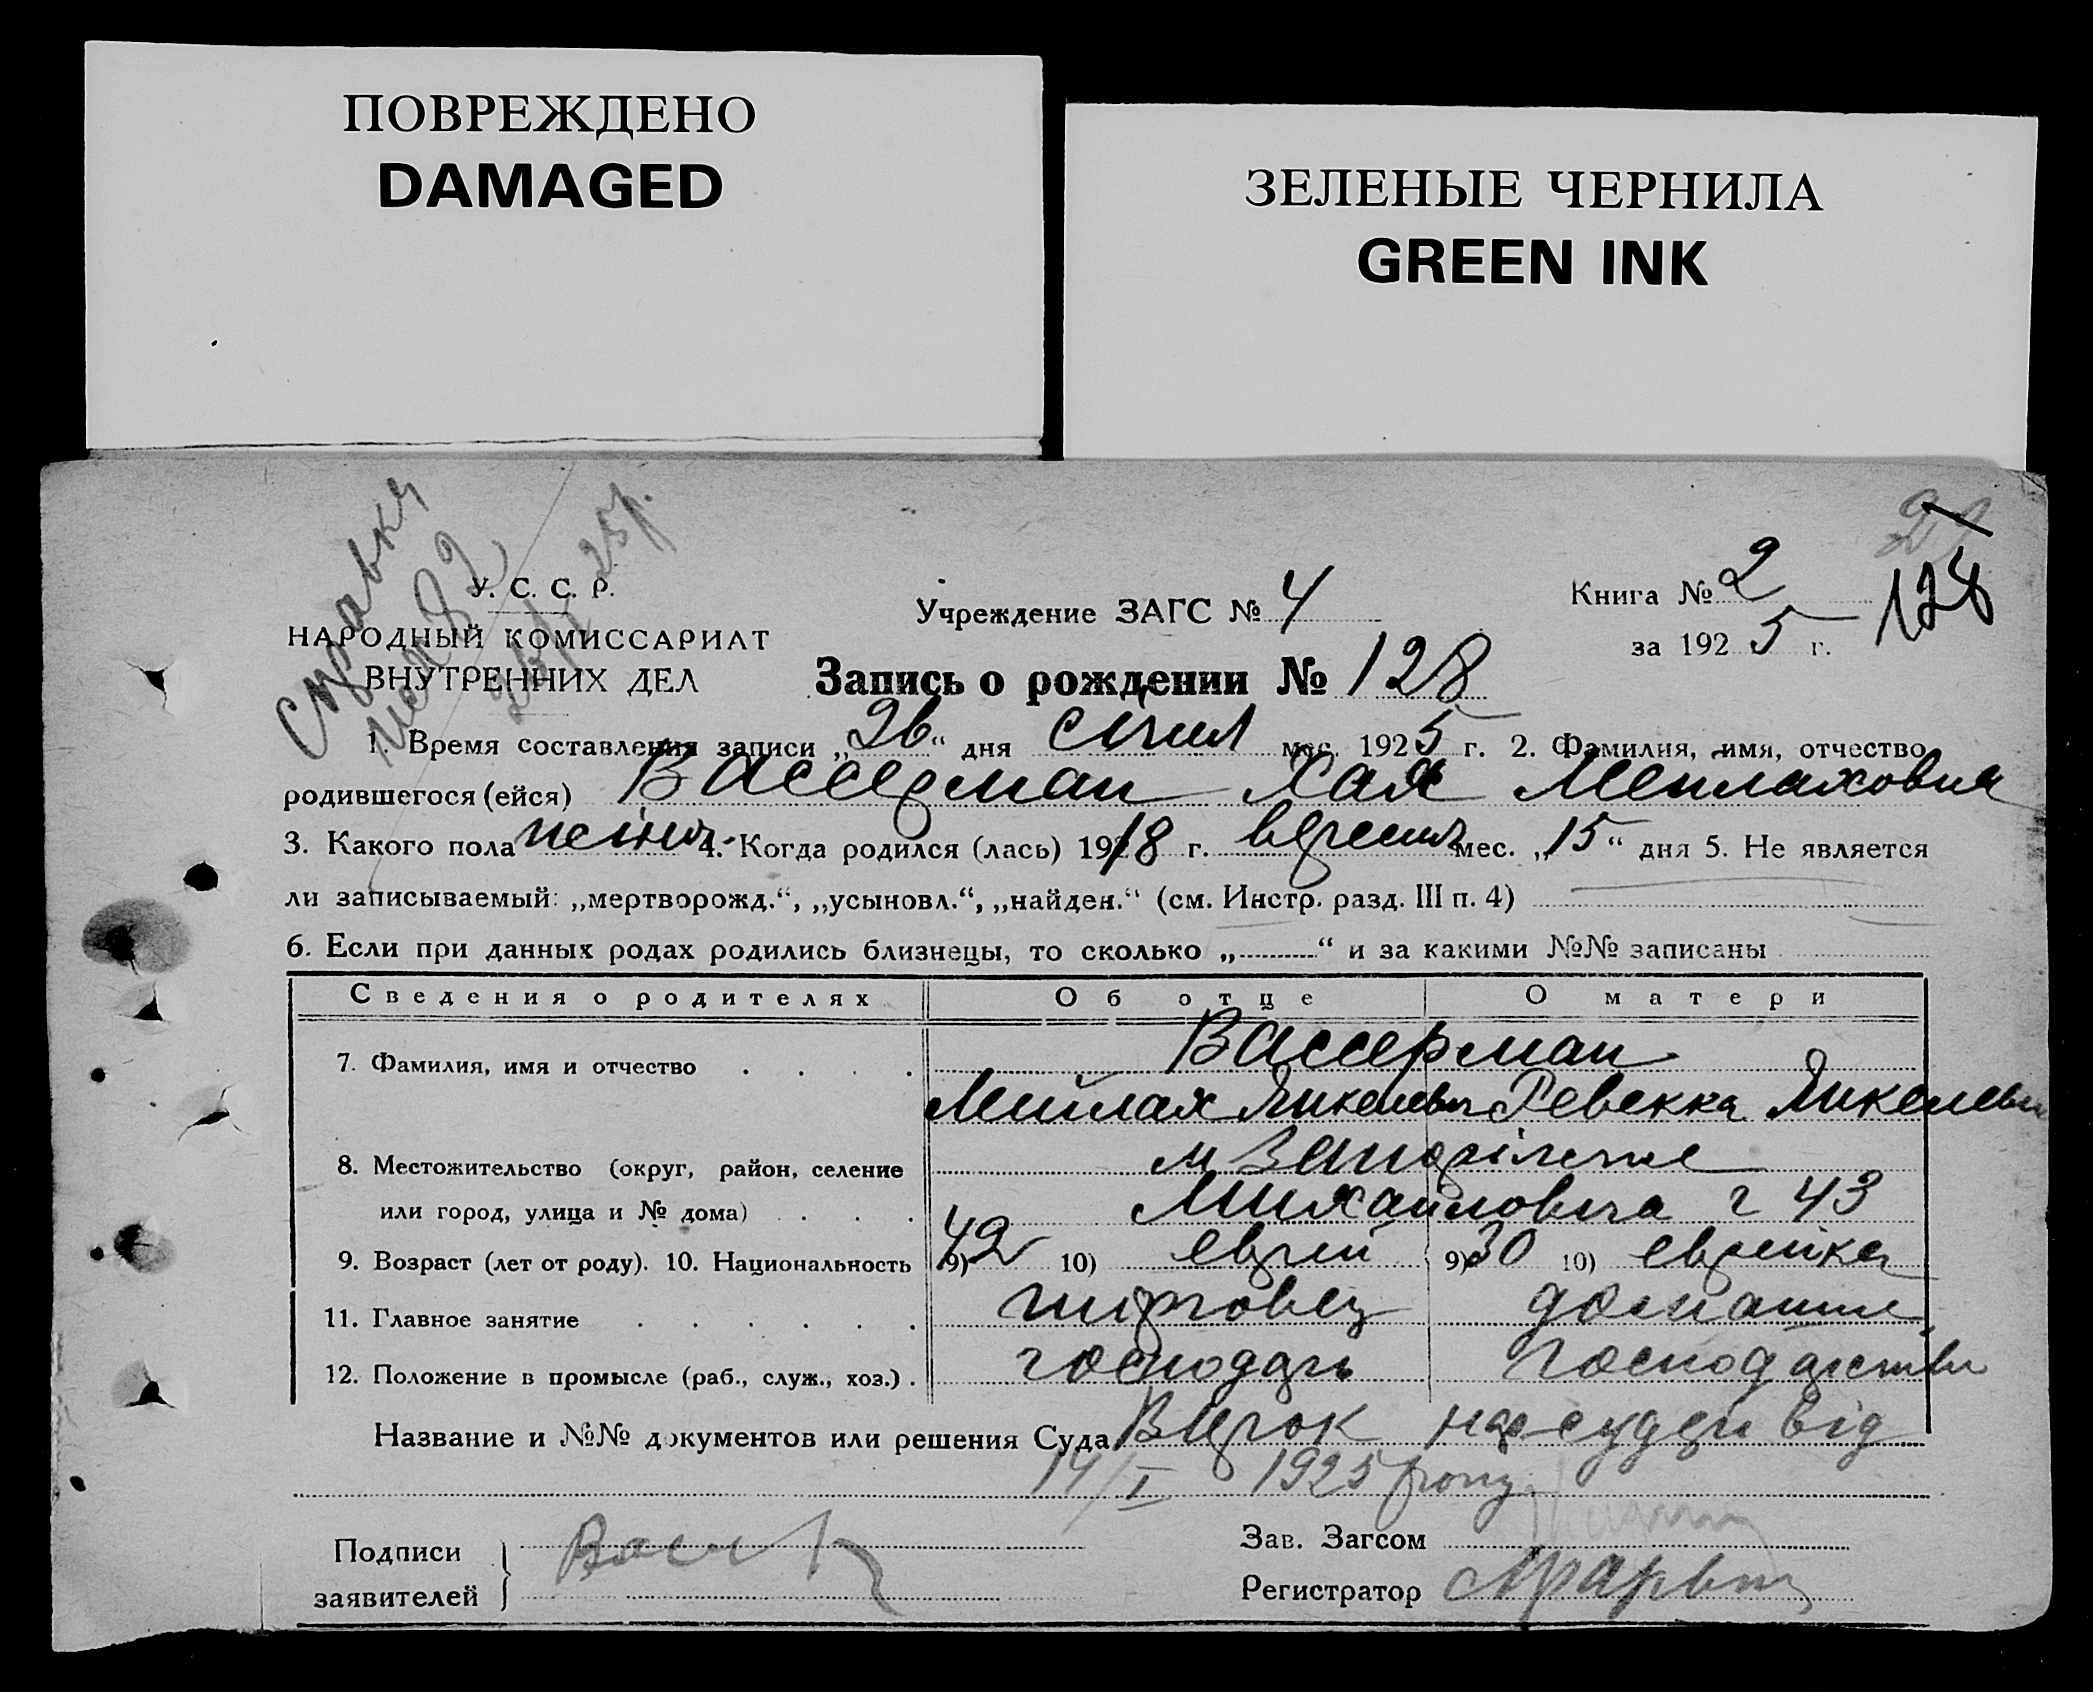 ПОВРЕЖДЕНО
DAMAGED
ЗЕЛЕНЫЕ ЧЕРНИЛА
GREEN INK
справка
25р.
У. С. С. Р.
НАРОДНЫЙ КОМИССАРИАТ
ВНУТРЕННИХ ДЕЛ
Учреждение ЗАГС № 4
Книга № 2
за 1925 г.
128
Запись о рождении № 128
1. Время составления записи „26“ дня січня мес. 1925 г. 2. Фамилия, имя, отчество
родившегося (ейся) Вассерман Хая Мейлаховна
3. Какого пола 4. Когда родился (лась) 1918 г. вересня мес. „15“ дня 5. Не является
ли записываемый: „мертворожд.“, „усыновл.“, „найден.“ (см. Инстр. разд. III п. 4)
6. Если при данных родах родились близнецы, то сколько „ “ и за какими №№ записаны
Сведения о родителях Об отце О матери
7. Фамилия, имя и отчество Вассерман
Мейлах Янкелевич Ревекка Янкелевна
8. Местожительство (округ, район, селение м
или город, улица и № дома) Михайловича 43
9. Возраст (лет от роду). 10. Национальность 9) 42 10) еврей 9) 30 10) еврейка
11. Главное занятие торговец домашне
12. Положение в промысле (раб., служ., хоз.) господарь господарство
Название и №№ документов или решения Суда Вирок нарсуда від
14/I 1925 року
Подписи
заявителей
Зав. Загсом
Регистратор